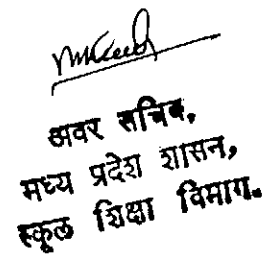 अवर सचिव,
मध्य प्रदेश शासन,
स्कूल शिक्षा विभाग.